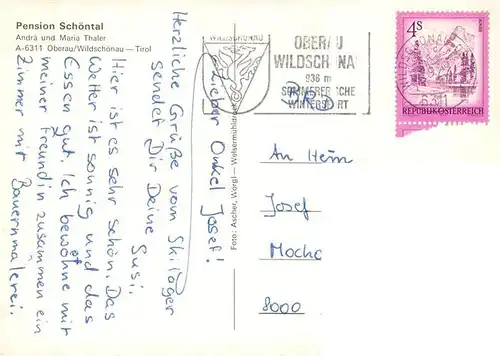 Pension Schöntal
Andrä und Maria Thaler
A-6311 Oberau/Wildschönau — Tirol
Lieber Onkel Josef!
Hier ist es sehr schön. Das
Wetter ist sonnig und das
Essen gut. Ich bewohne mit
meiner Freundin zusammen ein
Zimmer mit Bauernmalerei.
Herzliche Grüße vom Skilager
sendet Dir Deine
Susi.
Foto: Ascher, Wörgl — Welsermühldruck
WILDSCHÖNAU
OBERAU
WILDSCHÖNAU
936 m
SOMMERFRISCHE
WINTERSPORT
BRD
4S
REPUBLIK ÖSTERREICH
WILDSCHÖNAU
6311
An Herrn
Josef
Mocha
8000